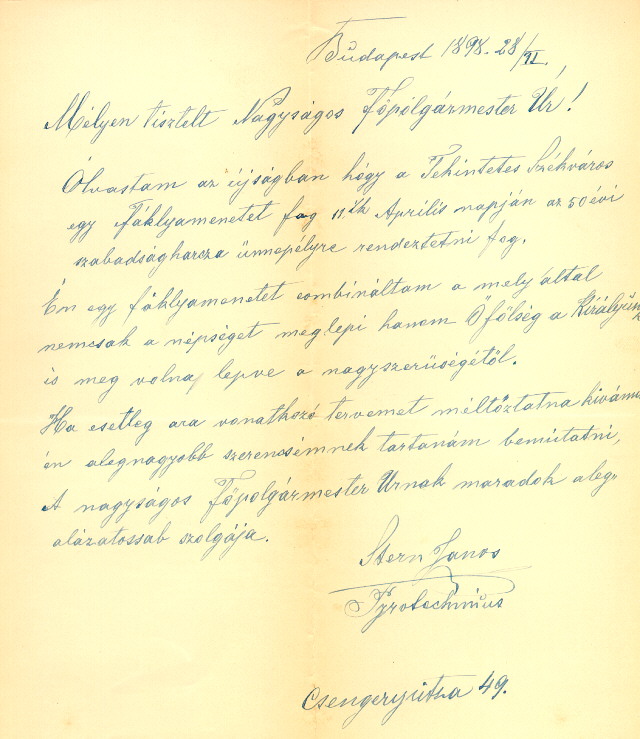 Budapest 1898. 28/VI.
Mélyen tisztelt Nagyságos Főpólgármester Úr!
Ólvastam az ujságban hógy a Tekintetes Székváros
egy Fáklyamenetet fog 11ik Aprílis napján az 50 évi
szabadságharcza ünnepélyre rendeztetni fog.
Én egy fáklyamenetet combináltam a mely által
nemcsak a népséget meglepi hanem Őfölség a Királyünk
is meg volna lepve a nagyszerüségétől.
Ha esetleg ara vonatkozó tervemet méltóztatna kivánni
én alegnagyobb szerencsémnek tartanám bemútatni,
A nagyságos Főpolgármester Urnak maradok aleg-
alázatossab szolgája.
Stern Janos
Pyrotechnicus
Csengeryútza 49.